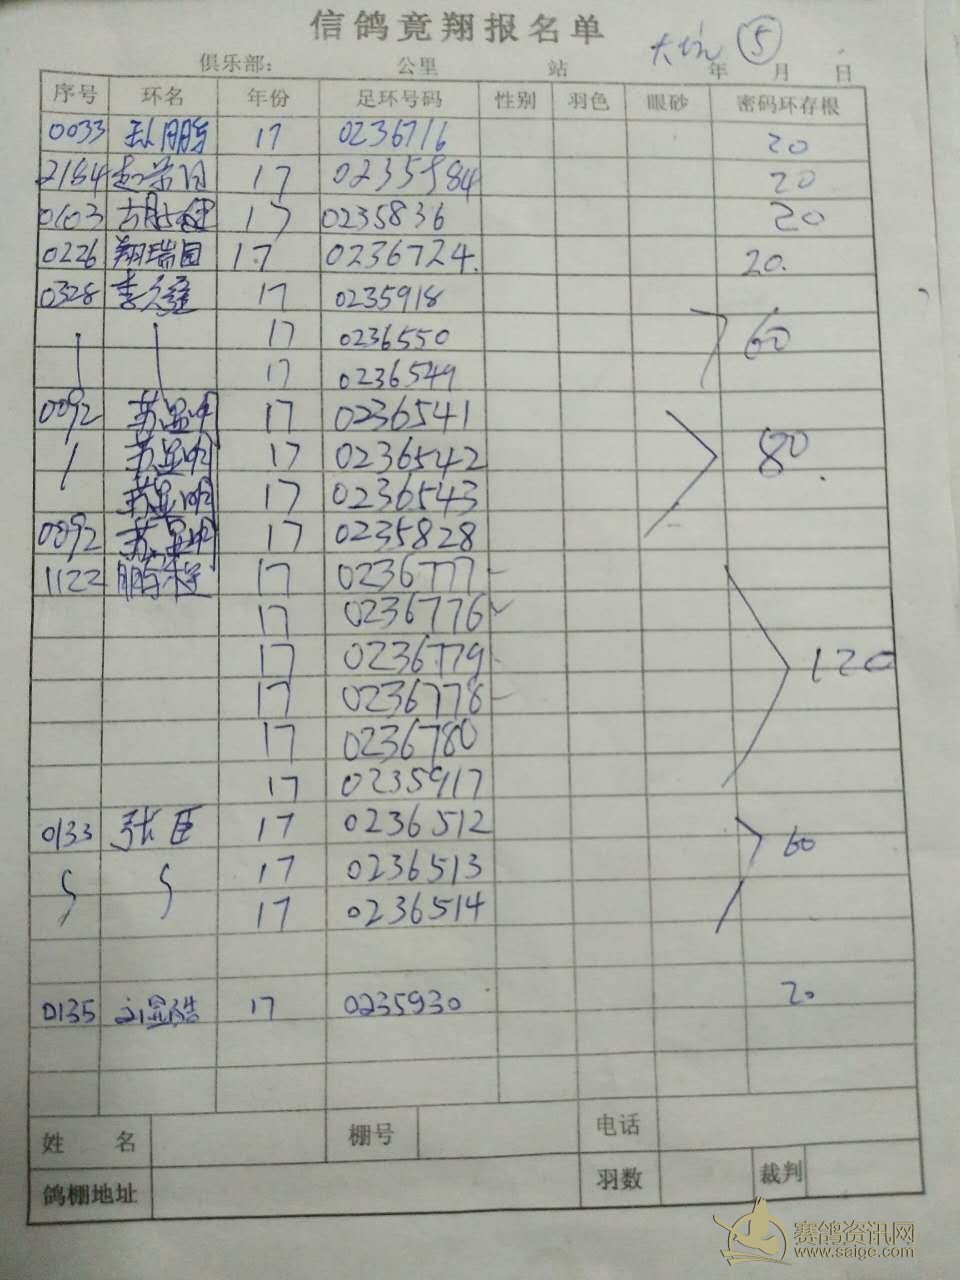 信鸽竟翔报名单
大坑 ⑤
俱乐部: 公里 站 年 月 日
序号 环名 年份 足环号码 性别 羽色 眼砂 密码环存根
0033 17 0236716 20
2164 17 0235984 20
0103 17 0235836 20
0226 翔瑞园 17 0236724. 20.
0328 17 0235918
17 0236550 60
17 0236549
0092 苏显明 17 0236541
苏显明 17 0236542 80
苏显明 17 0236543
0092 苏显明 17 0235828
1122 17 0236777
17 0236776
17 0236779 120
17 0236778
17 0236780
17 0235917
0133 张臣 17 0236512 60
17 0236513
17 0236514
0135 17 0235930 20
姓名 棚号 电话
鸽棚地址 羽数 裁判
赛鸽资讯网
www.saigc.com